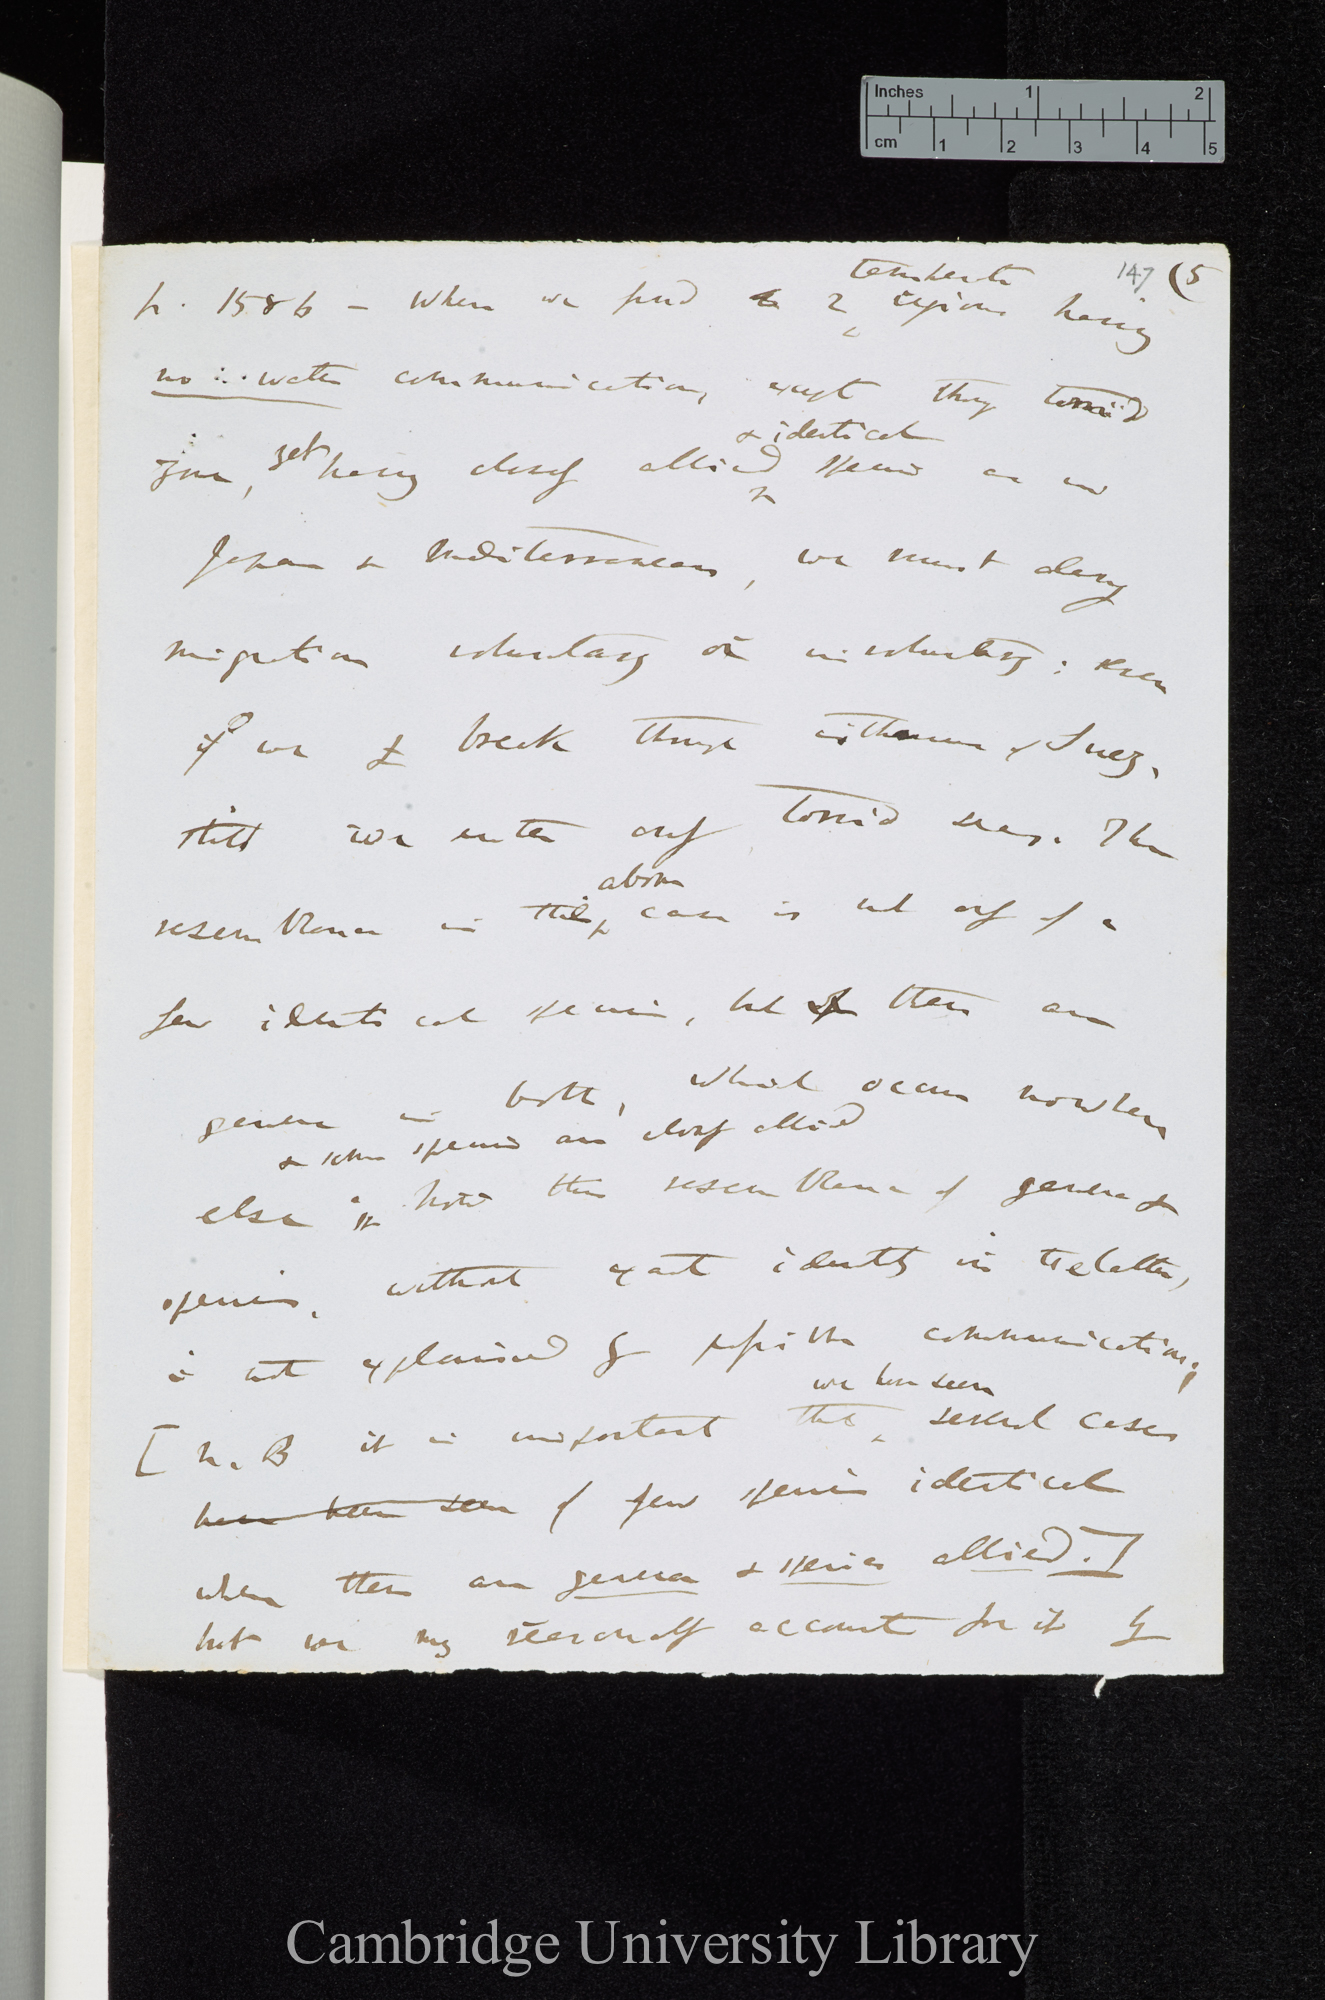 Inches 1 2
cm 1 2 3 4 5
147 (5
temperate
p. 1586 — When we find 2 regions having
no water communication, except thro torrid
& identical
zone, yet having closely allied species as in
Japan & Mediterranean, we must deny
migration voluntary or involuntary; even
if we break through isthmus of Suez,
still we enter only torrid seas. The
above
resemblance in this case is not only of a
few identical species, but there are
genera in both, which occur nowhere
& some species are closely allied
else; now this resemblance of genera &
species, without exact identity in the latter,
is not explained by possible communication;
we have seen
[N.B it is important that several cases
have been seen of few species identical
when there are genera & species allied.]
but we may reasonably account for it by
Cambridge University Library